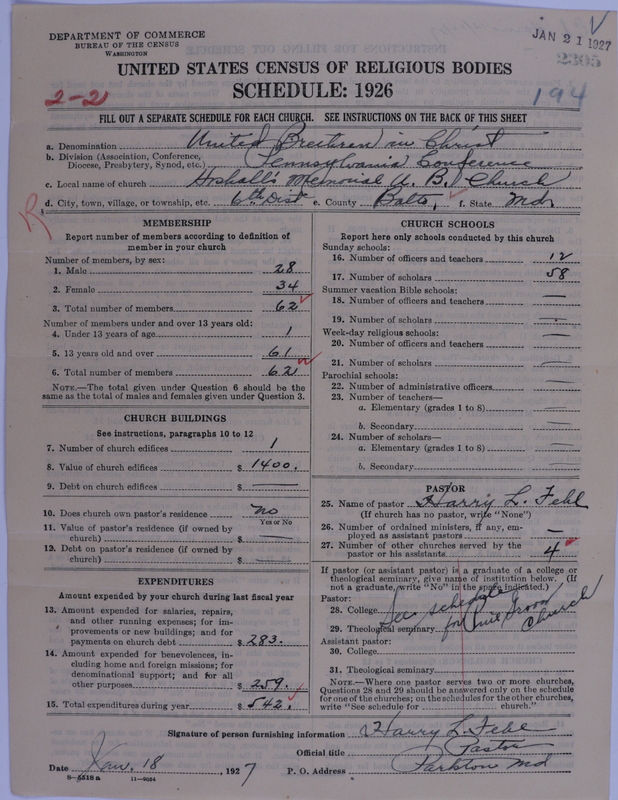 DEPARTMENT OF COMMERCE
BUREAU OF THE CENSUS
WASHINGTON
JAN 21 1927
2305
UNITED STATES CENSUS OF RELIGIOUS BODIES
2-21
SCHEDULE: 1926
194
FILL OUT A SEPARATE SCHEDULE FOR EACH CHURCH. SEE INSTRUCTIONS ON THE BACK OF THIS SHEET
a. Denomination United Brethren in Christ
b. Division (Association, Conference, Diocese, Presbytery, Synod, etc.) Pennsylvania Conference
c. Local name of church Memorial U. B. Church
d. City, town, village, or township, etc. 6th Dist e. County Balto, f. State Md.
R
MEMBERSHIP
Report number of members according to definition of
member in your church
Number of members, by sex:
1. Male 28
2. Female 34
3. Total number of members 62
Number of members under and over 13 years old:
4. Under 13 years of age 1
5. 13 years old and over 61
6. Total number of members 62
NOTE.—The total given under Question 6 should be the
same as the total of males and females given under Question 3.
CHURCH BUILDINGS
See instructions, paragraphs 10 to 12
7. Number of church edifices 1
8. Value of church edifices $ 1400.
9. Debt on church edifices $ —
10. Does church own pastor's residence no
Yes or No
11. Value of pastor's residence (if owned by
church) $ —
12. Debt on pastor's residence (if owned by
church) $ —
EXPENDITURES
Amount expended by your church during last fiscal year
13. Amount expended for salaries, repairs,
and other running expenses; for im-
provements or new buildings; and for
payments on church debt $ 283.
14. Amount expended for benevolences, in-
cluding home and foreign missions; for
denominational support; and for all
other purposes $ 259.
15. Total expenditures during year $ 542.
CHURCH SCHOOLS
Report here only schools conducted by this church
Sunday schools:
16. Number of officers and teachers 12
17. Number of scholars 58
Summer vacation Bible schools:
18. Number of officers and teachers —
19. Number of scholars —
Week-day religious schools:
20. Number of officers and teachers —
21. Number of scholars —
Parochial schools:
22. Number of administrative officers —
23. Number of teachers—
a. Elementary (grades 1 to 8) —
b. Secondary —
24. Number of scholars—
a. Elementary (grades 1 to 8) —
b. Secondary —
PASTOR
25. Name of pastor Harry L. Fehl
(If church has no pastor, write "None")
26. Number of ordained ministers, if any, em-
ployed as assistant pastors —
27. Number of other churches served by the
pastor or his assistants 4
If pastor (or assistant pastor) is a graduate of a college or
theological seminary, give name of institution below. (If
not a graduate, write "No" in the space indicated.)
Pastor:
28. College See schedule
29. Theological seminary for Pine Grove Church
Assistant pastor:
30. College
31. Theological seminary
NOTE.—Where one pastor serves two or more churches,
Questions 28 and 29 should be answered only on the schedule
for one of the churches; on the schedules for the other churches,
write "See schedule for church."
Signature of person furnishing information Harry L. Fehl
Official title Pastor
Date Jan. 18, 1927 P. O. Address Parkton Md
8-5518a 11-9064